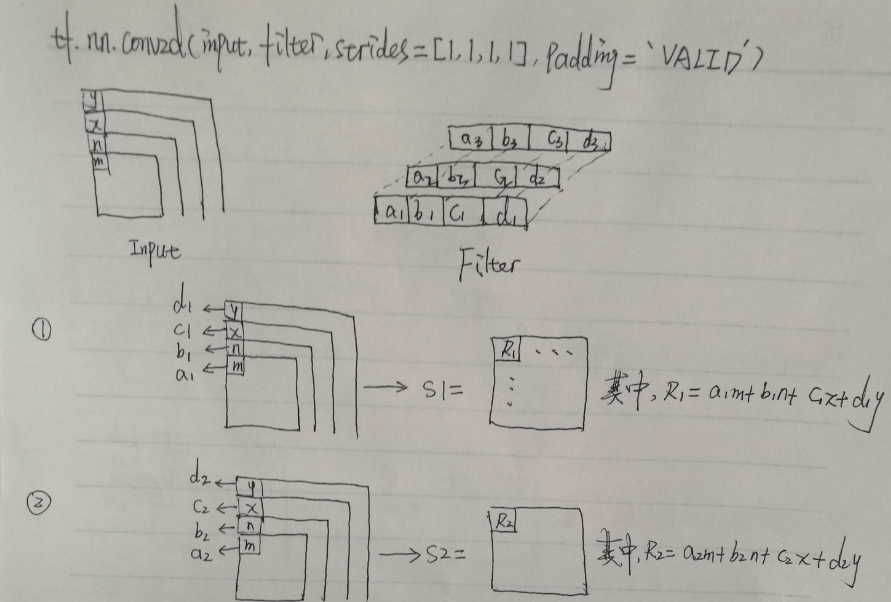 tf.nn.conv2d(input, filter, strides=[1,1,1,1], padding='VALID')
y
x
n
m
Input
a3 b3 c3 d3
a2 b2 c2 d2
a1 b1 c1 d1
Filter
①
d1 ← y
c1 ← x
b1 ← n
a1 ← m
→ S1=
R1 ...
其中, R1 = a1m+b1n+c1x+d1y
②
d2 ← y
c2 ← x
b2 ← n
a2 ← m
→ S2=
R2
其中, R2 = a2m+b2n+c2x+d2y